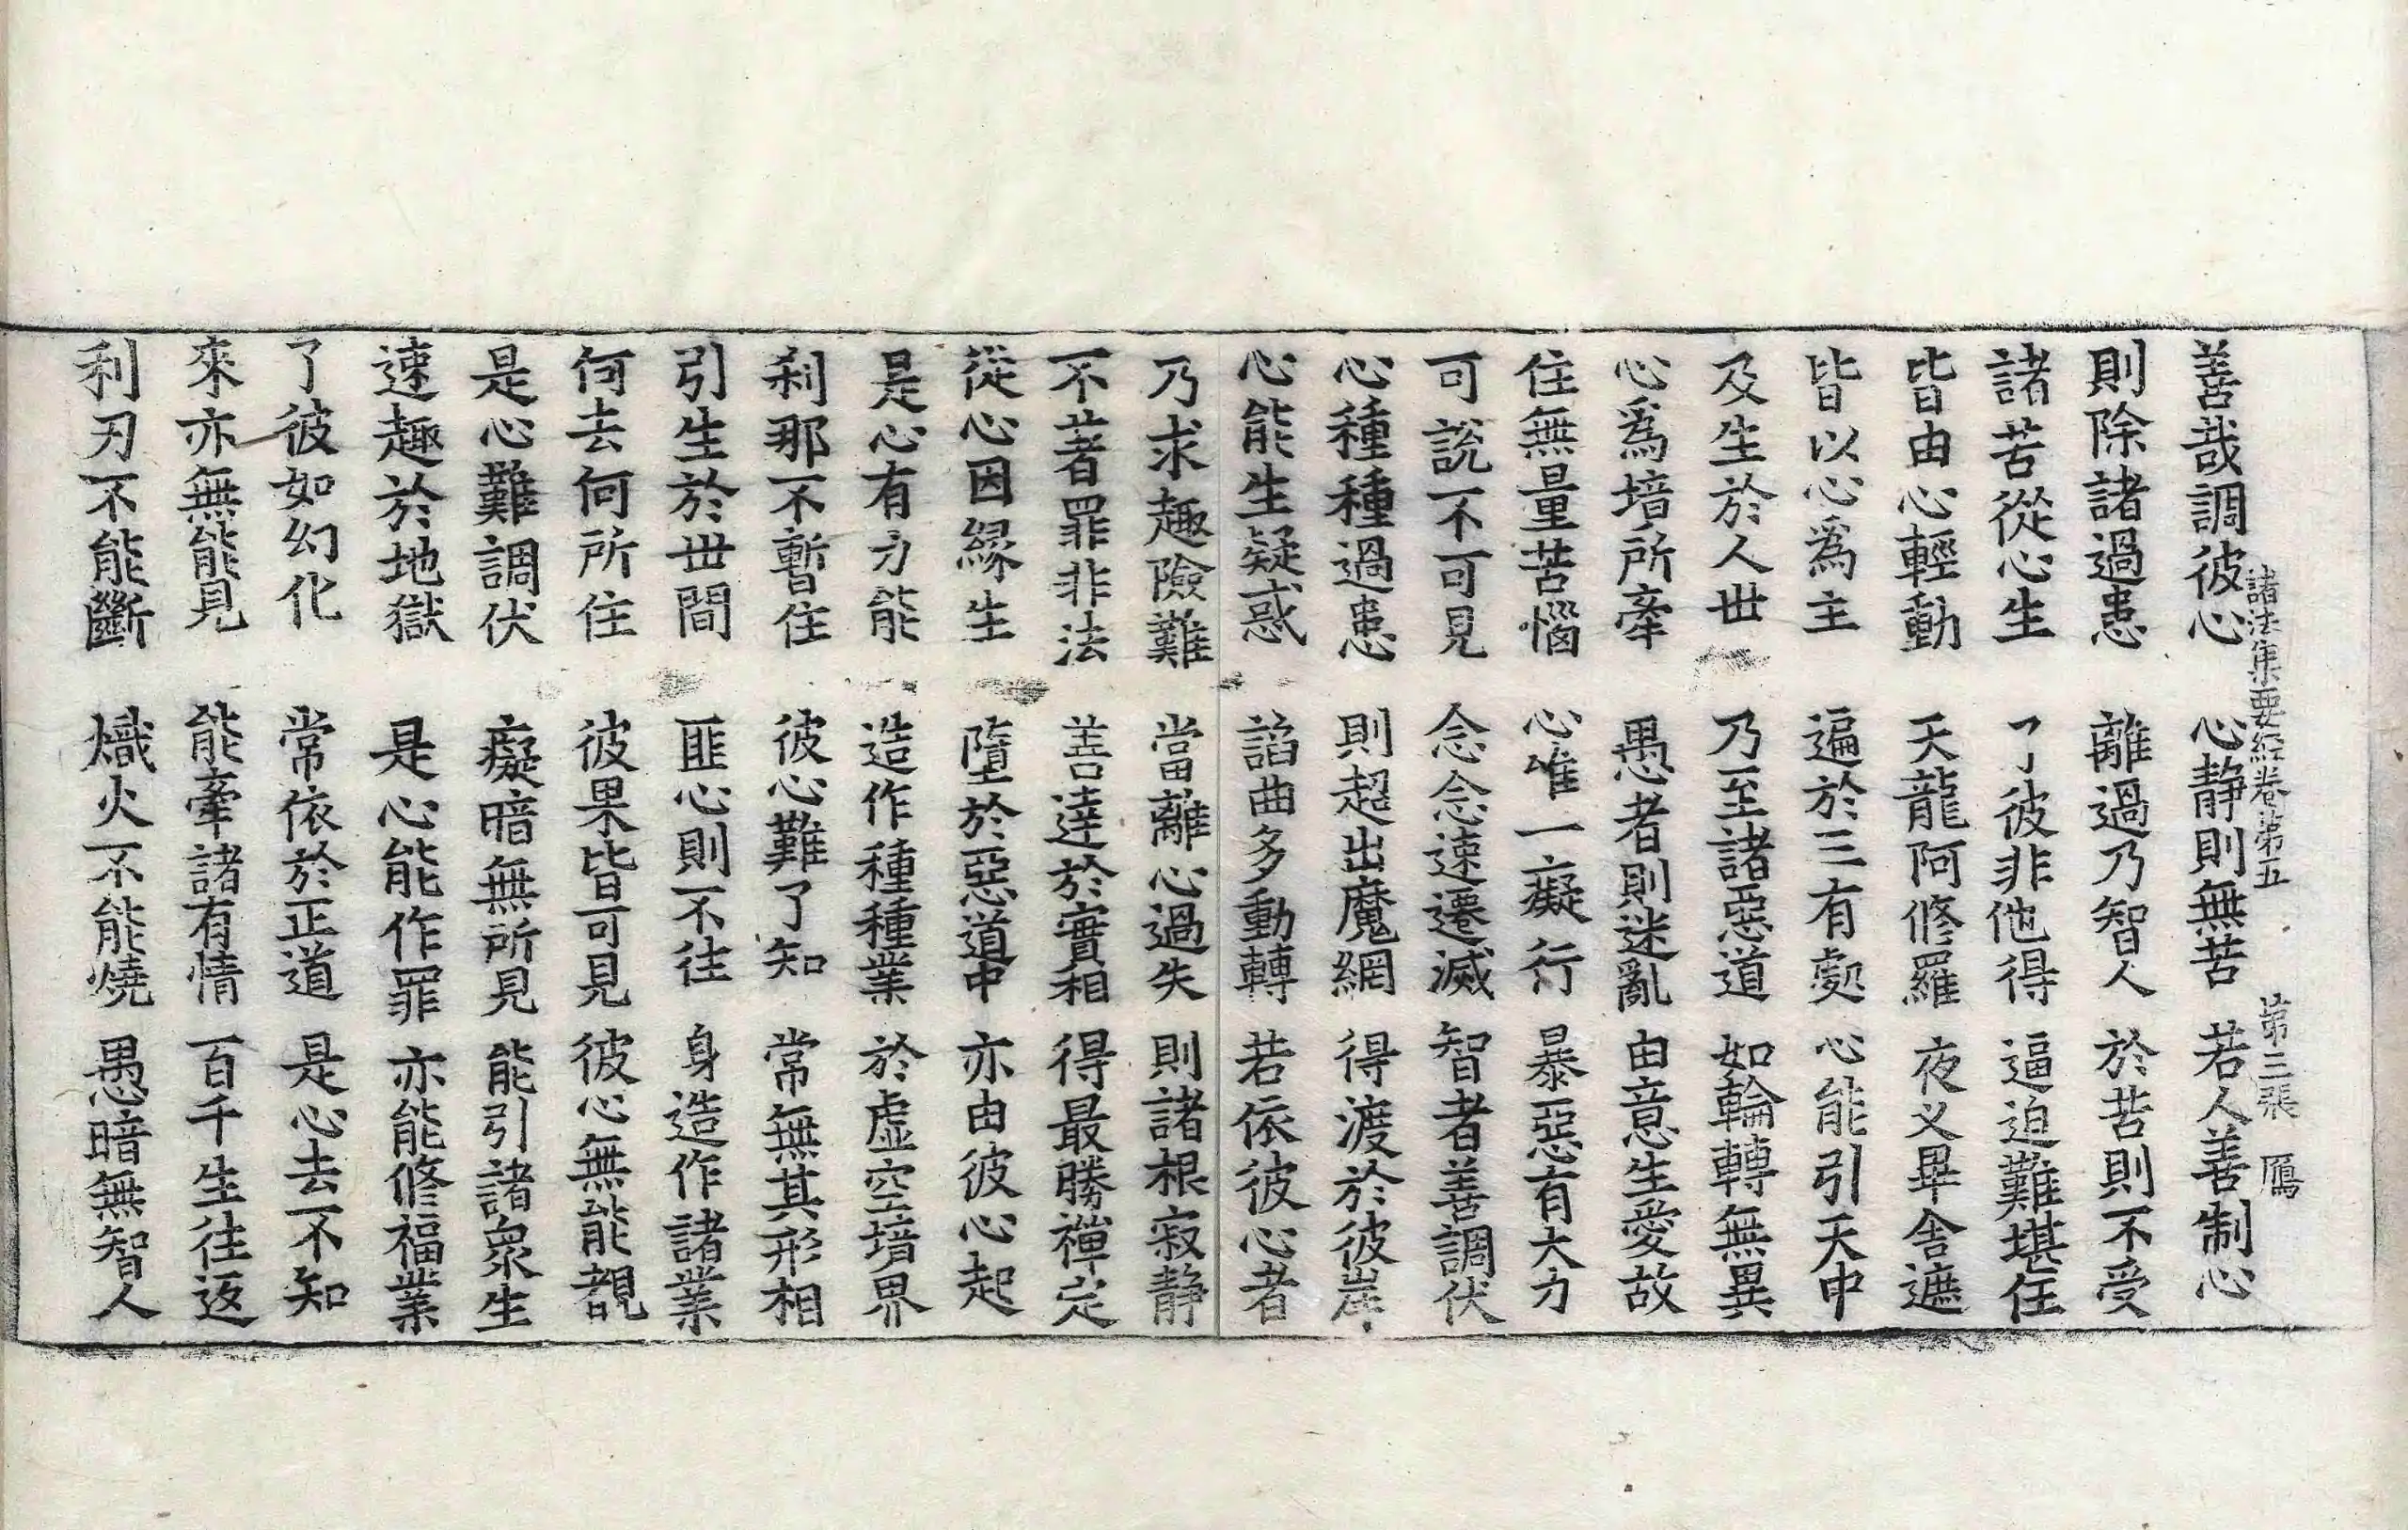 諸法集要經卷第五 第三張 鴈
善哉調彼心 心静則無苦 若人善制心
則除諸過患 離過乃智人 於苦則不受
諸苦從心生 了彼非他得 逼迫難堪任
皆由心輕動 天龍阿修羅 夜叉畢舍遮
皆以心爲主 遍於三有處 心能引天中
及生於人世 乃至諸惡道 如輪轉無異
心爲境所牽 愚者則迷亂 由意生愛故
住無量苦惱 心唯一癡行 暴惡有大力
可說不可見 念念速遷滅 智者善調伏
心種種過患 則超出魔網 得渡於彼岸
心能生疑惑 諂曲多動轉 若依彼心者
乃求趣險難 當離心過失 則諸根寂静
不著罪非法 善達於實相 得最勝禪定
從心因緣生 墮於惡道中 亦由彼心起
是心有力能 造作種種業 於虛空境界
刹那不暫住 彼心難了知 常無其形相
引生於世間 匪心則不往 身造作諸業
何去何所住 彼果皆可見 彼心無能覩
是心難調伏 癡暗無所見 能引諸衆生
速趣於地獄 是心能作罪 亦能修福業
了彼如幻化 常依於正道 是心去不知
來亦無能見 能牽諸有情 百千生往返
利刃不能斷 熾火不能燒 愚暗無智人